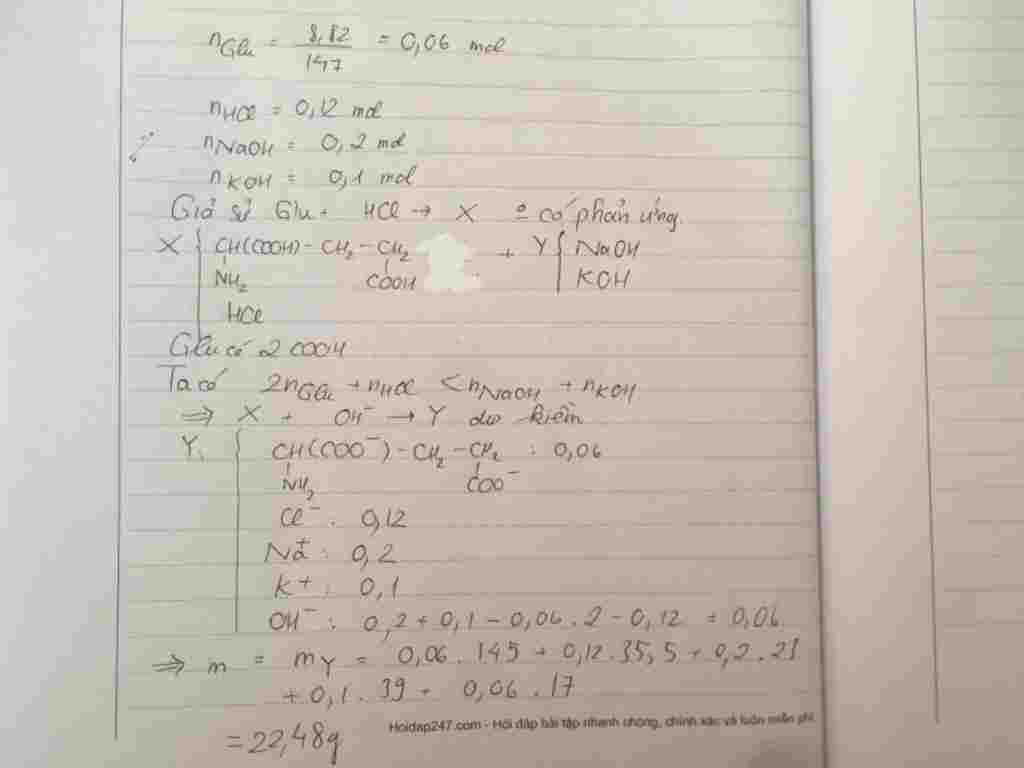 nGlu = 8,82/147 = 0,06 mol
nHCl = 0,12 mol
nNaOH = 0,2 mol
nKOH = 0,1 mol
Giả sử Glu + HCl → X ⁰ có phản ứng.
X { CH(COOH) - CH2 - CH2 + Y { NaOH
NH2 COOH KOH
HCl
Glu có 2 COOH
Ta có 2nGlu + nHCl < nNaOH + nKOH
⇒ X + OH⁻ → Y dư kiềm
Y { CH(COO⁻) - CH2 - CH2 : 0,06
NH2 COO⁻
Cl⁻ : 0,12
Na⁺ : 0,2
K⁺ : 0,1
OH⁻ : 0,2 + 0,1 - 0,06 . 2 - 0,12 = 0,06
⇒ m = mY = 0,06 . 145 + 0,12 . 35,5 + 0,2 . 23
+ 0,1 . 39 + 0,06 . 17
= 22,48g
Hoidap247.com - Hỏi đáp bài tập nhanh chóng, chính xác và luôn miễn phí